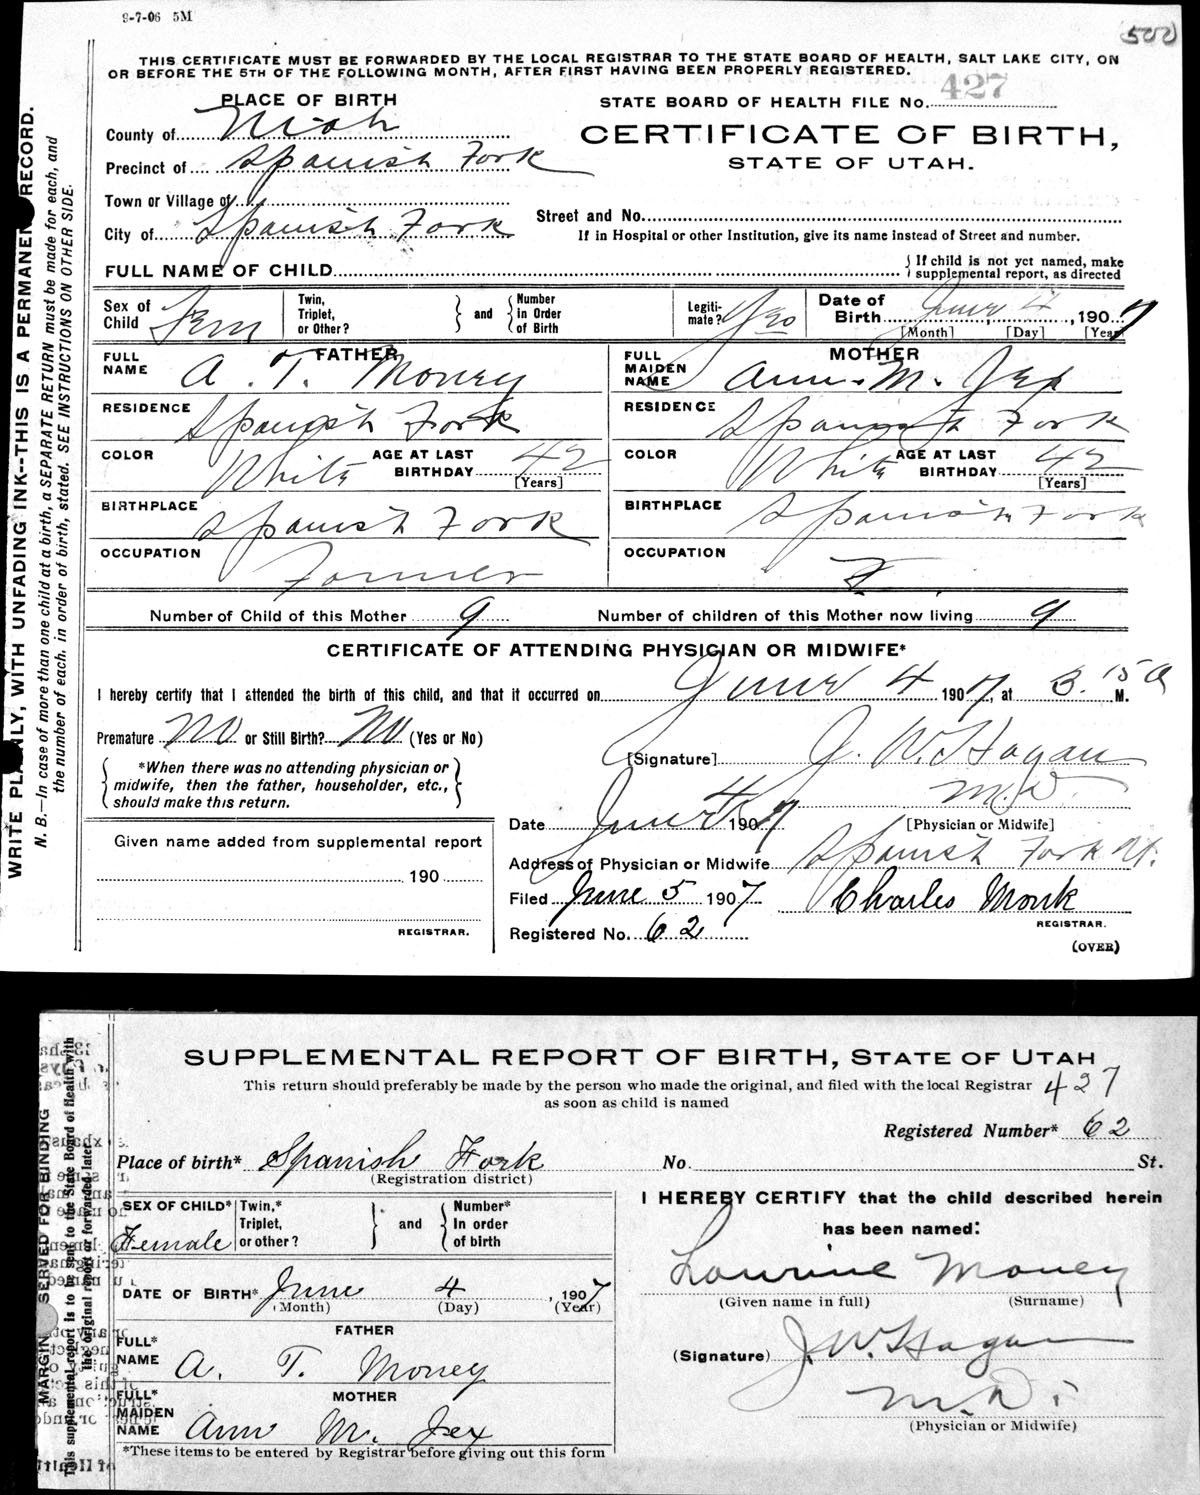 9-7-06 5M
500
THIS CERTIFICATE MUST BE FORWARDED BY THE LOCAL REGISTRAR TO THE STATE BOARD OF HEALTH, SALT LAKE CITY, ON
OR BEFORE THE 5TH OF THE FOLLOWING MONTH, AFTER FIRST HAVING BEEN PROPERLY REGISTERED.
PLACE OF BIRTH
STATE BOARD OF HEALTH FILE No. 427
County of Utah
CERTIFICATE OF BIRTH,
Precinct of Spanish Fork
STATE OF UTAH.
Town or Village of
Street and No.
City of Spanish Fork
If in Hospital or other Institution, give its name instead of Street and number.
FULL NAME OF CHILD
{ If child is not yet named, make
supplemental report, as directed
Sex of Child Fem
Twin, Triplet, or Other? } and { Number in Order of Birth
Legiti-mate? Yes
Date of Birth June 4, 1907
[Month] [Day] [Year]
FATHER
MOTHER
FULL NAME A. T. Money
FULL MAIDEN NAME Ann. M. Jex
RESIDENCE Spanish Fork
RESIDENCE Spanish Fork
COLOR White AGE AT LAST BIRTHDAY 42 [Years]
COLOR White AGE AT LAST BIRTHDAY 42 [Years]
BIRTHPLACE Spanish Fork
BIRTHPLACE Spanish Fork
OCCUPATION Farmer
OCCUPATION
Number of Child of this Mother 9 Number of children of this Mother now living 9
CERTIFICATE OF ATTENDING PHYSICIAN OR MIDWIFE*
I hereby certify that I attended the birth of this child, and that it occurred on June 4 1907, at 3.15 A M.
Premature No or Still Birth? No (Yes or No)
[Signature] J. W. Hagan
M.D.
*When there was no attending physician or
midwife, then the father, householder, etc.,
should make this return.
Date June 4 1907
[Physician or Midwife]
Given name added from supplemental report
190
REGISTRAR.
Address of Physician or Midwife Spanish Fork Ut.
Filed June 5 1907 Charles Monk
REGISTRAR.
Registered No. 62
(OVER)
WRITE PLAINLY, WITH UNFADING INK--THIS IS A PERMANENT RECORD.
N. B.—In case of more than one child at a birth, a SEPARATE RETURN must be made for each, and
the number of each, in order of birth, stated. SEE INSTRUCTIONS ON OTHER SIDE.
SUPPLEMENTAL REPORT OF BIRTH, STATE OF UTAH
This return should preferably be made by the person who made the original, and filed with the local Registrar
as soon as child is named
427
Registered Number* 62
Place of birth* Spanish Fork
(Registration district)
No. St.
SEX OF CHILD* Female
Twin,* Triplet, or other? } and { Number* In order of birth
I HEREBY CERTIFY that the child described herein
has been named:
DATE OF BIRTH* June 4, 1907
(Month) (Day) (Year)
Lourine Money
(Given name in full) (Surname)
FATHER
FULL* NAME A. T. Money
(Signature) J. W. Hagan
M.D.
(Physician or Midwife)
MOTHER
FULL* MAIDEN NAME Ann M. Jex
*These items to be entered by Registrar before giving out this form
MARGIN SERVED FOR BINDING
This supplemental report is to be sent to the State Board of Health with
the original report or forwarded later